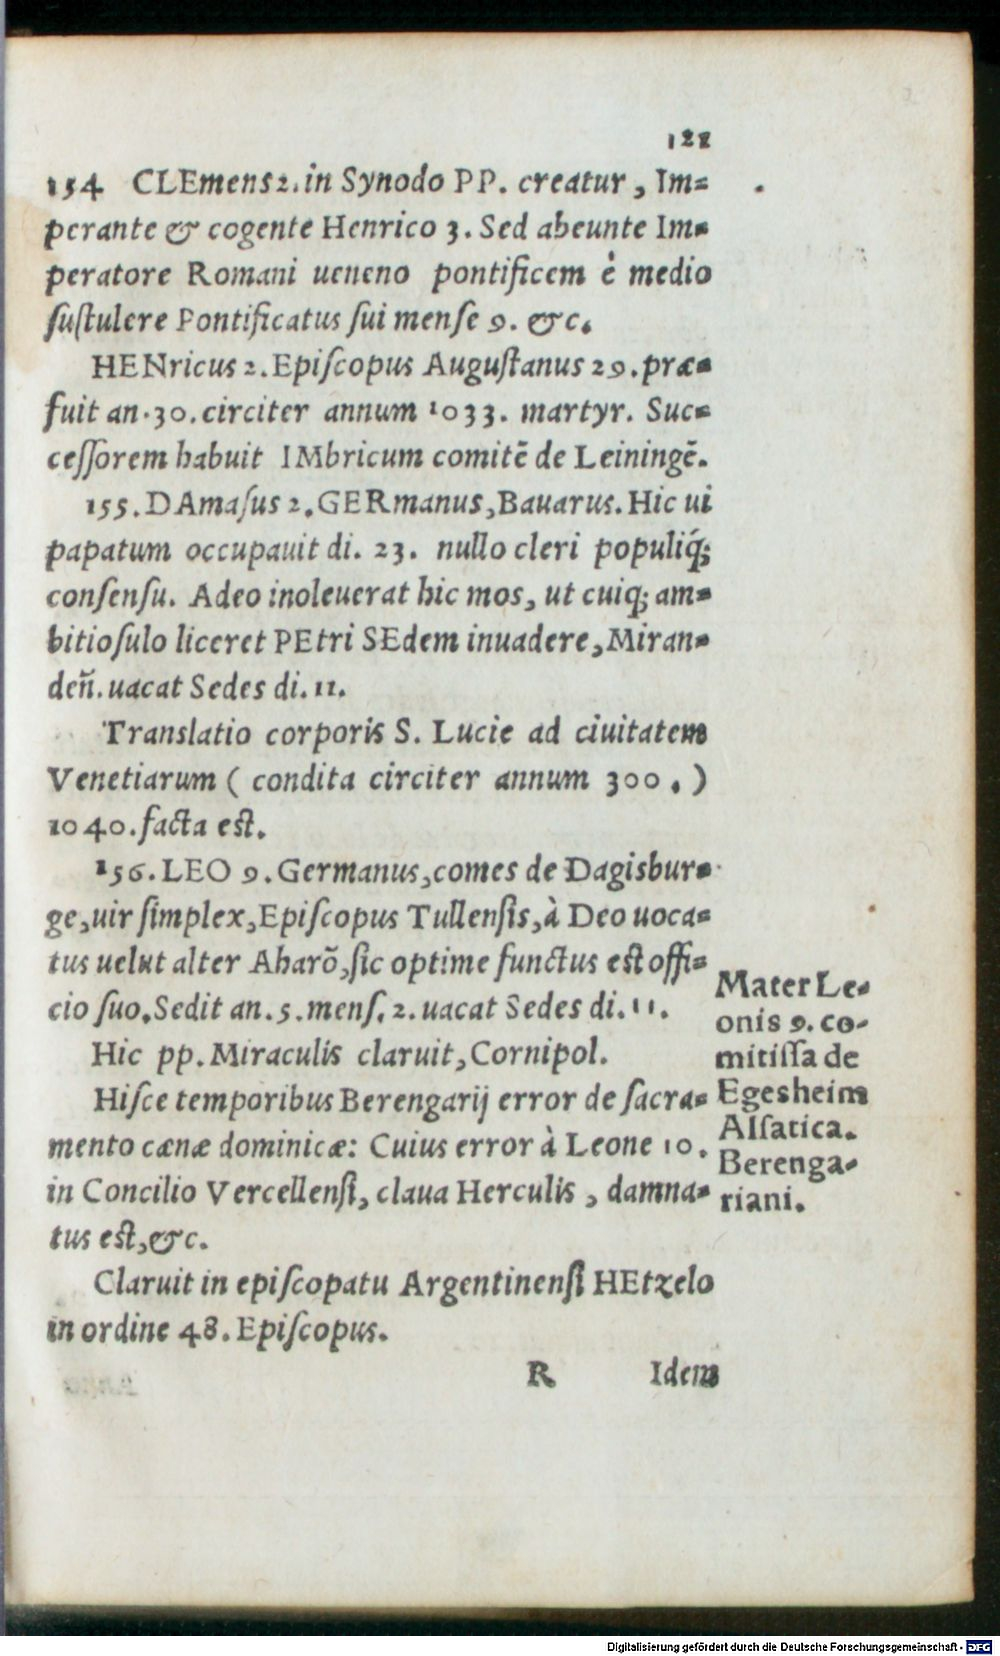 128
154 CLEmens 2. in Synodo PP. creatur, Im=
perante & cogente Henrico 3. Sed abeunte Im=
peratore Romani ueneno pontificem è medio
ſuſtulere Pontificatus ſui menſe 9. &c.
HENricus 2. Epiſcopus Auguſtanus 29. præ=
fuit an. 30. circiter annum 1033. martyr. Suc=
ceſſorem habuit IMbricum comitē de Leiningē.
155. DAmaſus 2. GERmanus, Bauarus. Hic ui
papatum occupauit di. 23. nullo cleri populiq́;
conſenſu. Adeo inoleuerat hic mos, ut cuiq; am=
bitioſulo liceret PEtri SEdem inuadere, Miran=
den̄. uacat Sedes di. 11.
Translatio corporis S. Lucie ad ciuitatem
Venetiarum ( condita circiter annum 300. )
1040. facta eſt.
156. LEO 9. Germanus, comes de Dagisbur=
ge, uir ſimplex, Epiſcopus Tullenſis, à Deo uoca=
tus uelut alter Aharō, ſic optime functus eſt offi=
cio ſuo. Sedit an. 5. menſ. 2. uacat Sedes di. 11.
Hic pp. Miraculis claruit, Cornipol.
Hiſce temporibus Berengarij error de ſacra=
mento cænæ dominicæ: Cuius error à Leone 10.
in Concilio Vercellenſi, claua Herculis, damna=
tus eſt, &c.
Claruit in epiſcopatu Argentinenſi HEtzelo
in ordine 48. Epiſcopus.
Mater Le=
onis 9. co-
mitiſſa de
Egesheim
Alſatica.
Berenga=
riani.
R Idem
Digitalisierung gefördert durch die Deutsche Forschungsgemeinschaft - DFG